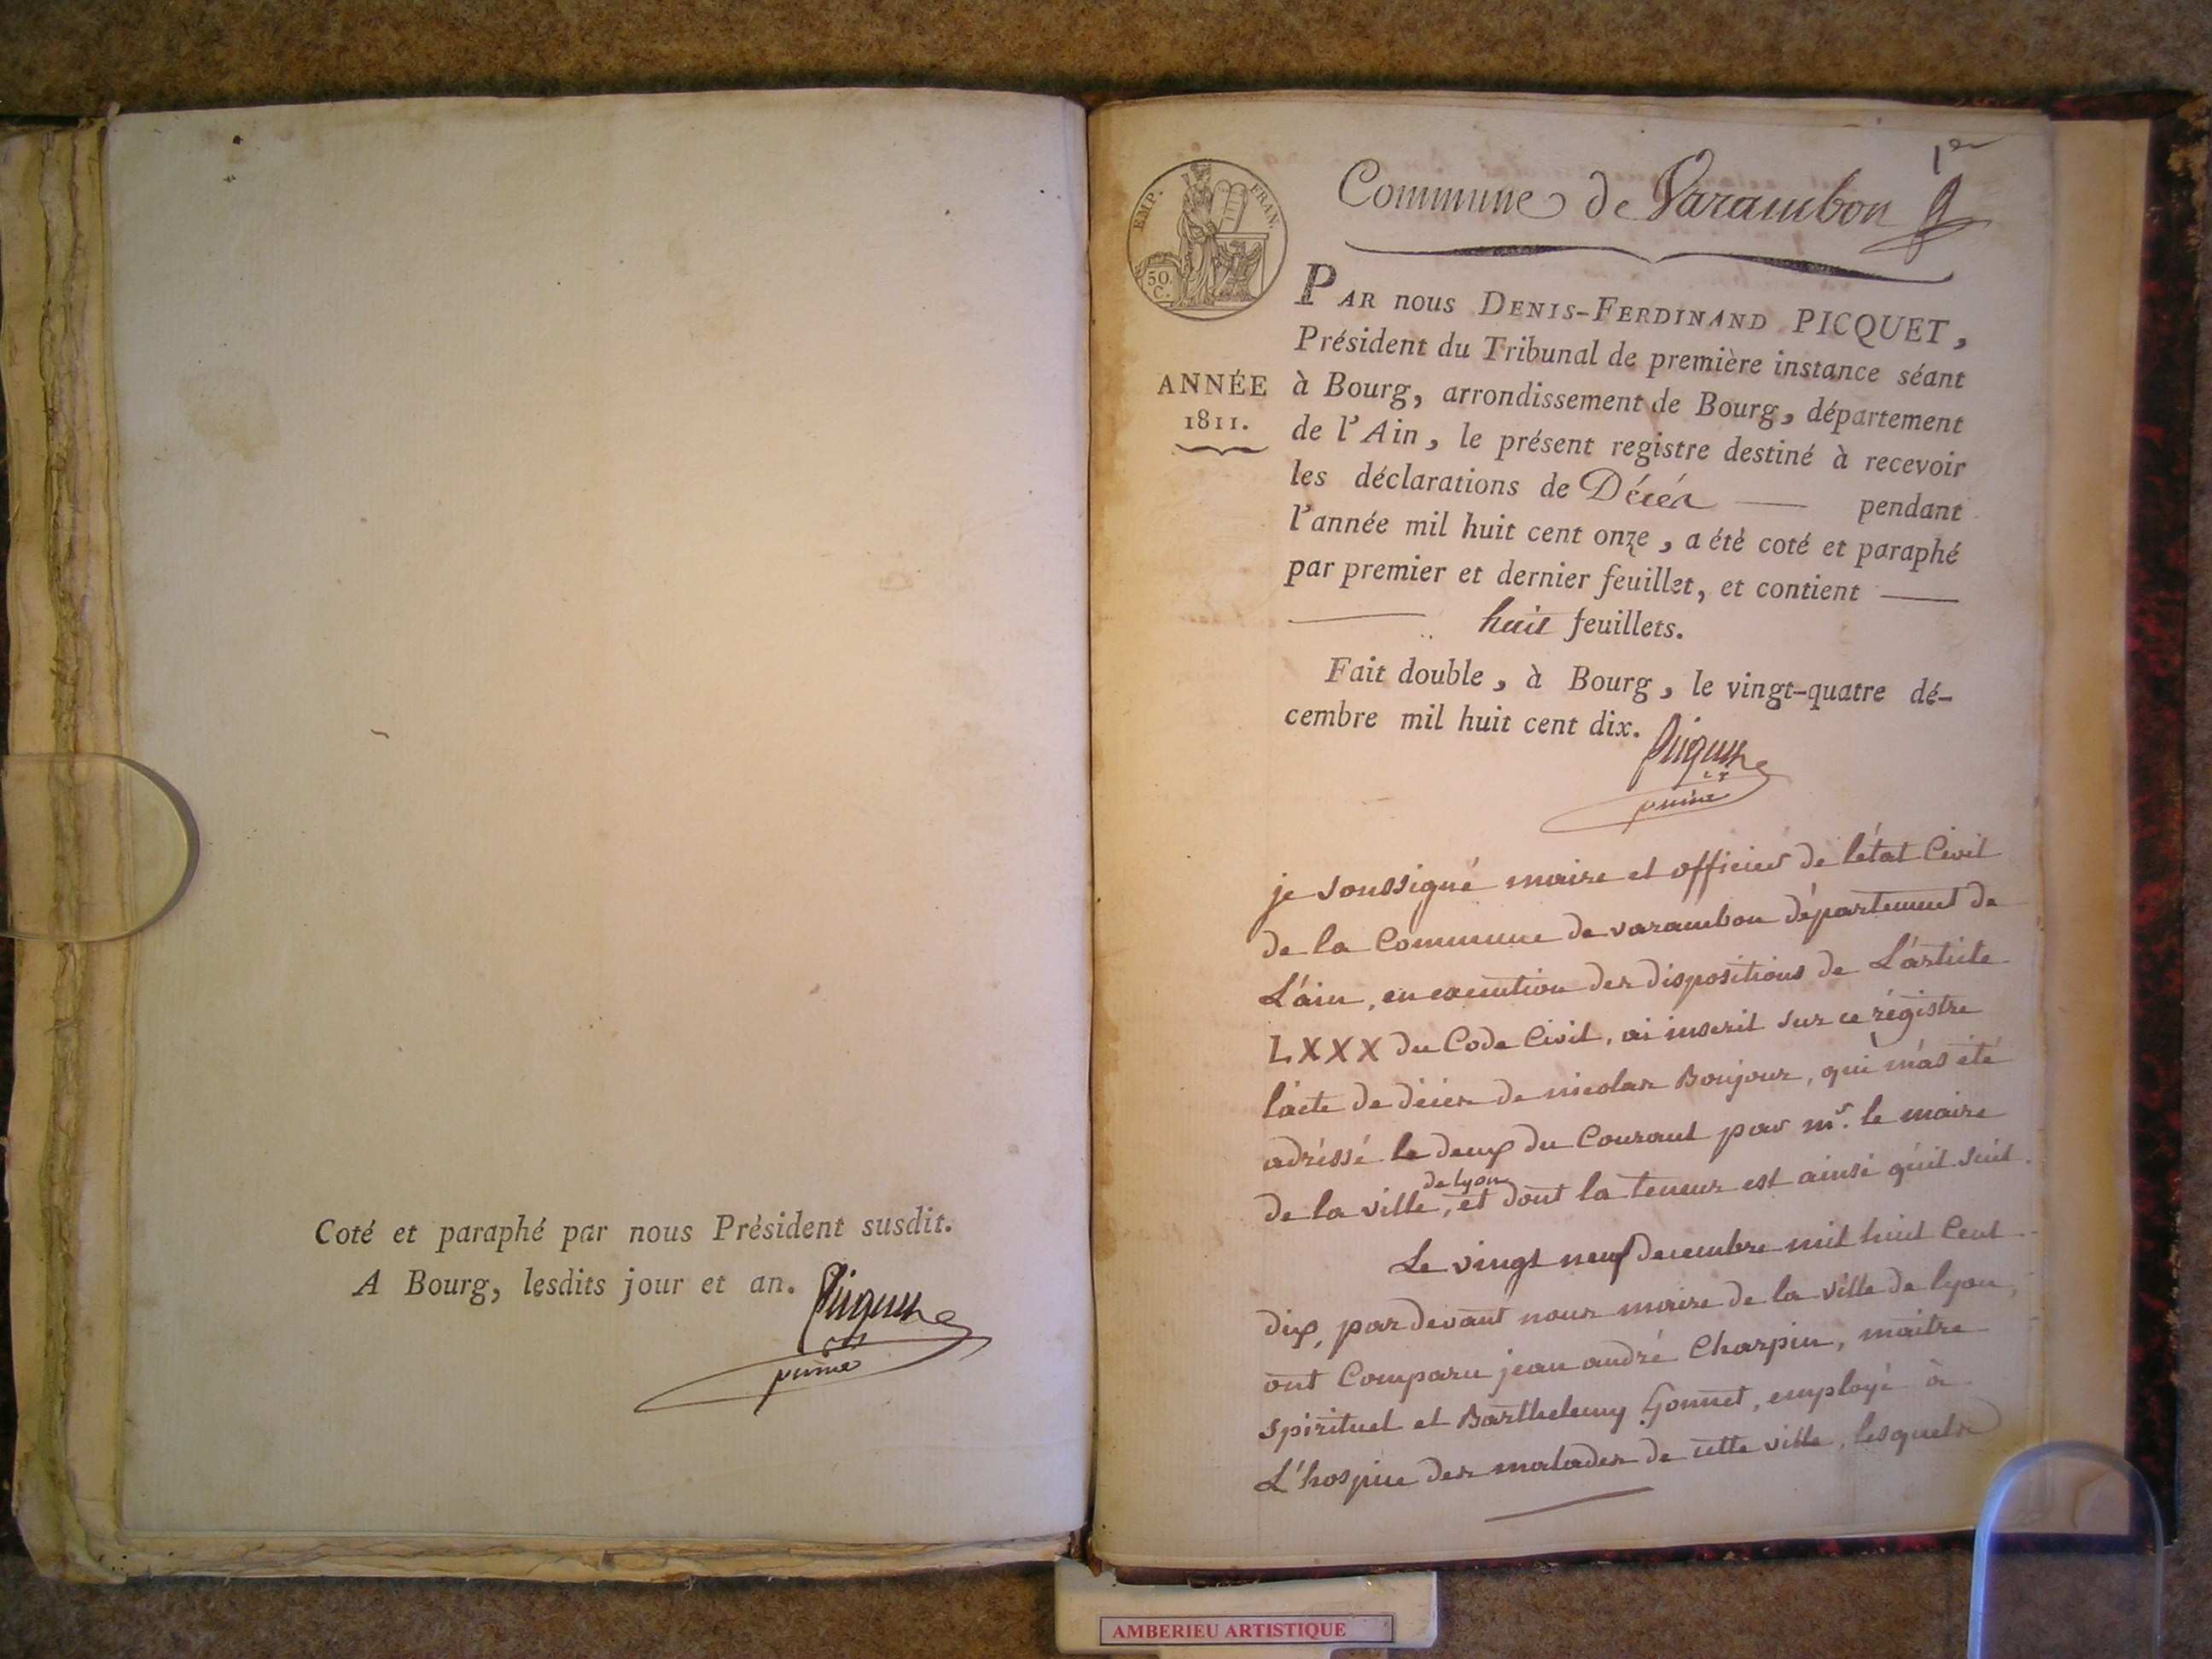 Coté et paraphé par nous Président susdit.
A Bourg, lesdits jour et an.
Picquet
1er
Commune de Varambon
EMP. FRAN.
50.
C.
ANNÉE
1811.
PAR nous DENIS-FERDINAND PICQUET,
Président du Tribunal de première instance séant
à Bourg, arrondissement de Bourg, département
de l'Ain, le présent registre destiné à recevoir
les déclarations de Décès — pendant
l'année mil huit cent onze, a été coté et paraphé
par premier et dernier feuillet, et contient —
— huit feuillets.
Fait double, à Bourg, le vingt-quatre dé-
cembre mil huit cent dix.
Picquet
je soussigné maire et officier de l'état Civil
de la Commune de varambon département de
L'ain, en execution des dispositions de L'article
LXXX du Code Civil, ai inscrit sur ce régistre
l'acte de décès de nicolas Bonjour, qui m'as été
adréssé le deux du Courant par mr. le maire
de la ville de lyon, et dont la teneur est ainsi qu'il suit.
Le vingt neuf decembre mil huit Cent
dix, par devant nous maire de la ville de lyon,
ont Comparu jean andré Charpin, maitre
spirituel et Barthelemy Gonnet, employé à
L'hospice des malades de cette ville, lesquels
AMBERIEU ARTISTIQUE